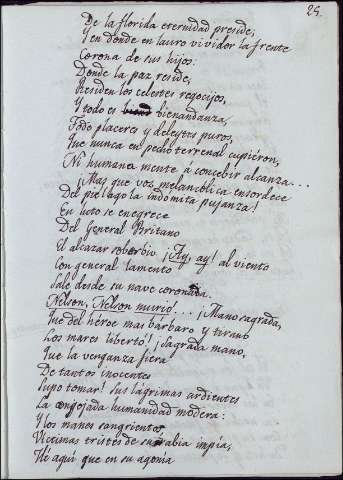 25.
De la florida eternidad preside,
Y en donde en lauro vividor la frente
Corona de sus hijos:
Donde la paz reside,
Residen los celestes regocijos,
Y todo es bienandanza,
Todo placeres y deleytes puros,
Que nunca en pecho terrenal cupiéron,
Ni humana mente á concebir alcanza...
¡Mas que voz melancólica ensordece
Del piélago la indómita pujanza!
En luto se enegrece
Del General Britano
El alcazar soberbio ¡Ay, ay! al viento
Con general lamento
Sale desde su nave coronada.
Nelson, Nelson murió!... ¡Mano sagrada,
Que del héroe mas bárbaro y tirano
Los mares libertó! ¡Sagrada mano,
Que la venganza fiera
De tantos inocentes
Supo tomar! Sus lágrimas ardientes
La congojada humanidad modera:
Y los manes sangrientos
Víctimas tristes de su rabia impía,
Hé aquí que en su agonía